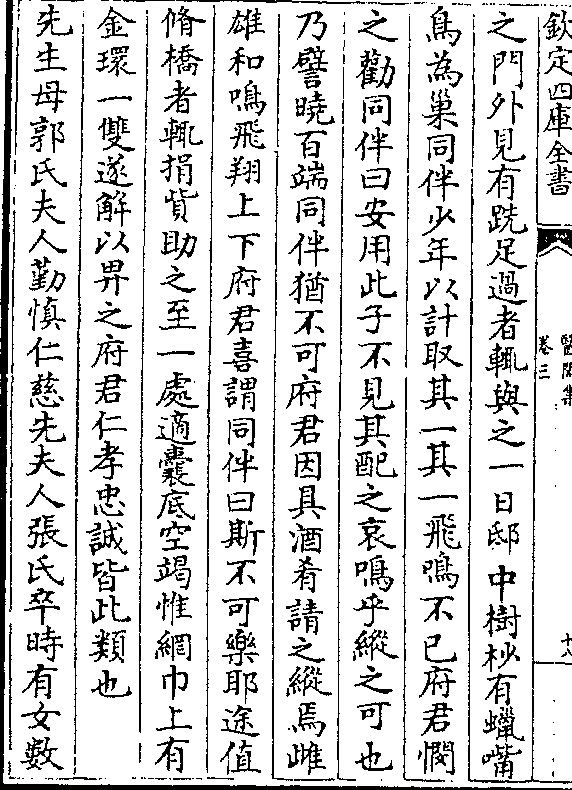 欽定四庫全書
醫閭集
卷三
十八
之門外見有跣足過者輒與之一日邸中樹杪有蠟嘴
鳥為巢同伴少年以計取其一其一飛鳴不已府君憫
之勸同伴曰安用此子不見其配之哀鳴乎縱之可也
乃譬曉百端同伴猶不可府君因具酒肴請之縱焉雌
雄和鳴飛翔上下府君喜謂同伴曰斯不可樂耶途值
脩橋者輒捐貲助之至一處適囊底空竭惟網巾上有
金環一雙遂解以畀之府君仁孝忠誠皆此類也
先生母郭氏夫人勤慎仁慈先夫人張氏卒時有女數